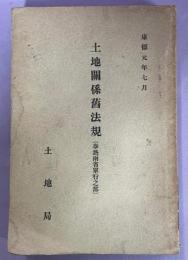 康德元年七月
土地關係舊法規（奉熱兩省單行之部）
土地局